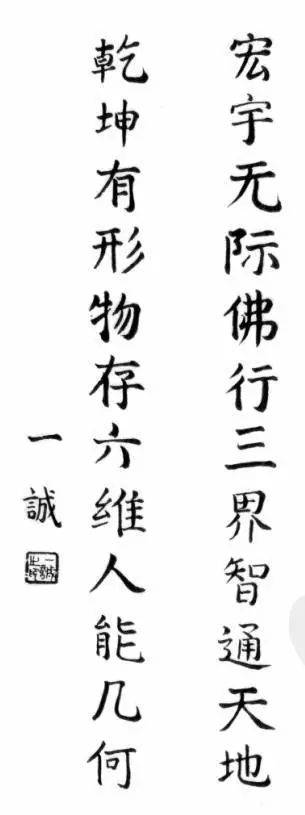 宏宇无际佛行三界智通天地
乾坤有形物存六维人能几何
一誠